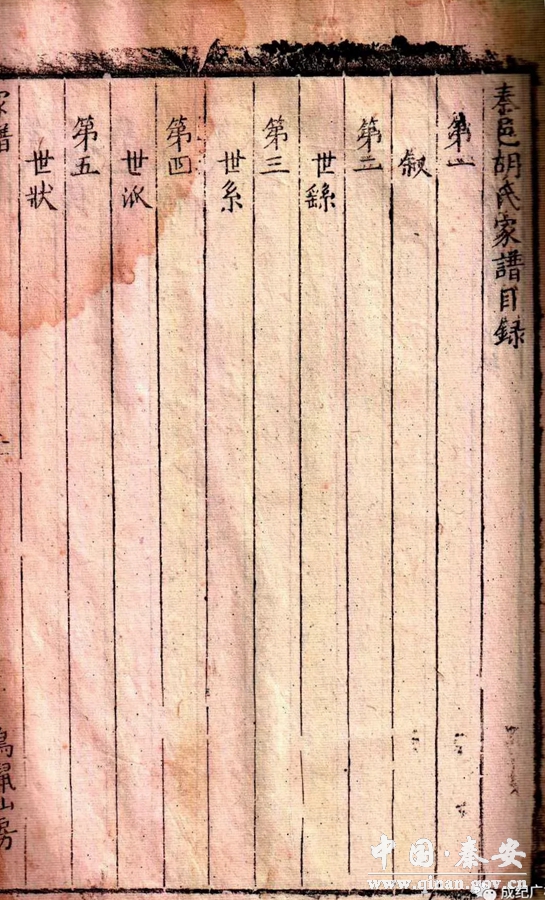 秦邑胡氏家譜目録
第一
叙
第二
世䋣
第三
世系
第四
世派
第五
世狀
家譜
鳥鼠山房
中国·秦安
www.qinan.gov.cn
成纪广